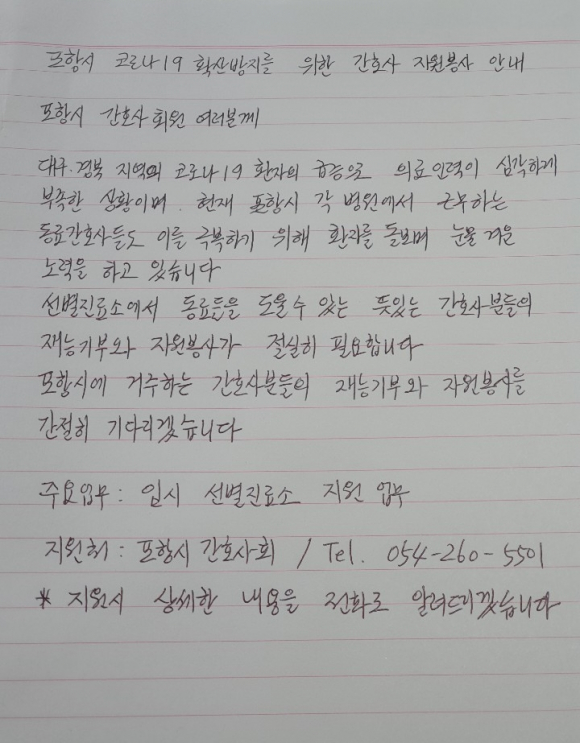 포항시 코로나19 확산방지를 위한 간호사 자원봉사 안내
포항시 간호사 회원 여러분께
대구·경북 지역의 코로나19 환자의 급증으로 의료인력이 심각하게
부족한 상황이며 현재 포항시 각 병원에서 근무하는
동료간호사들도 이를 극복하기 위해 환자를 돌보며 눈물겨운
노력을 하고 있습니다
선별진료소에서 동료들을 도울 수 있는 뜻있는 간호사분들의
재능기부와 자원봉사가 절실히 필요합니다
포항시에 거주하는 간호사분들의 재능기부와 자원봉사를
간절히 기다리겠습니다
주요업무 : 임시 선별진료소 지원 업무
지원처 : 포항시 간호사회 / Tel. 054-260-5501
* 지원시 상세한 내용을 전화로 알려드리겠습니다